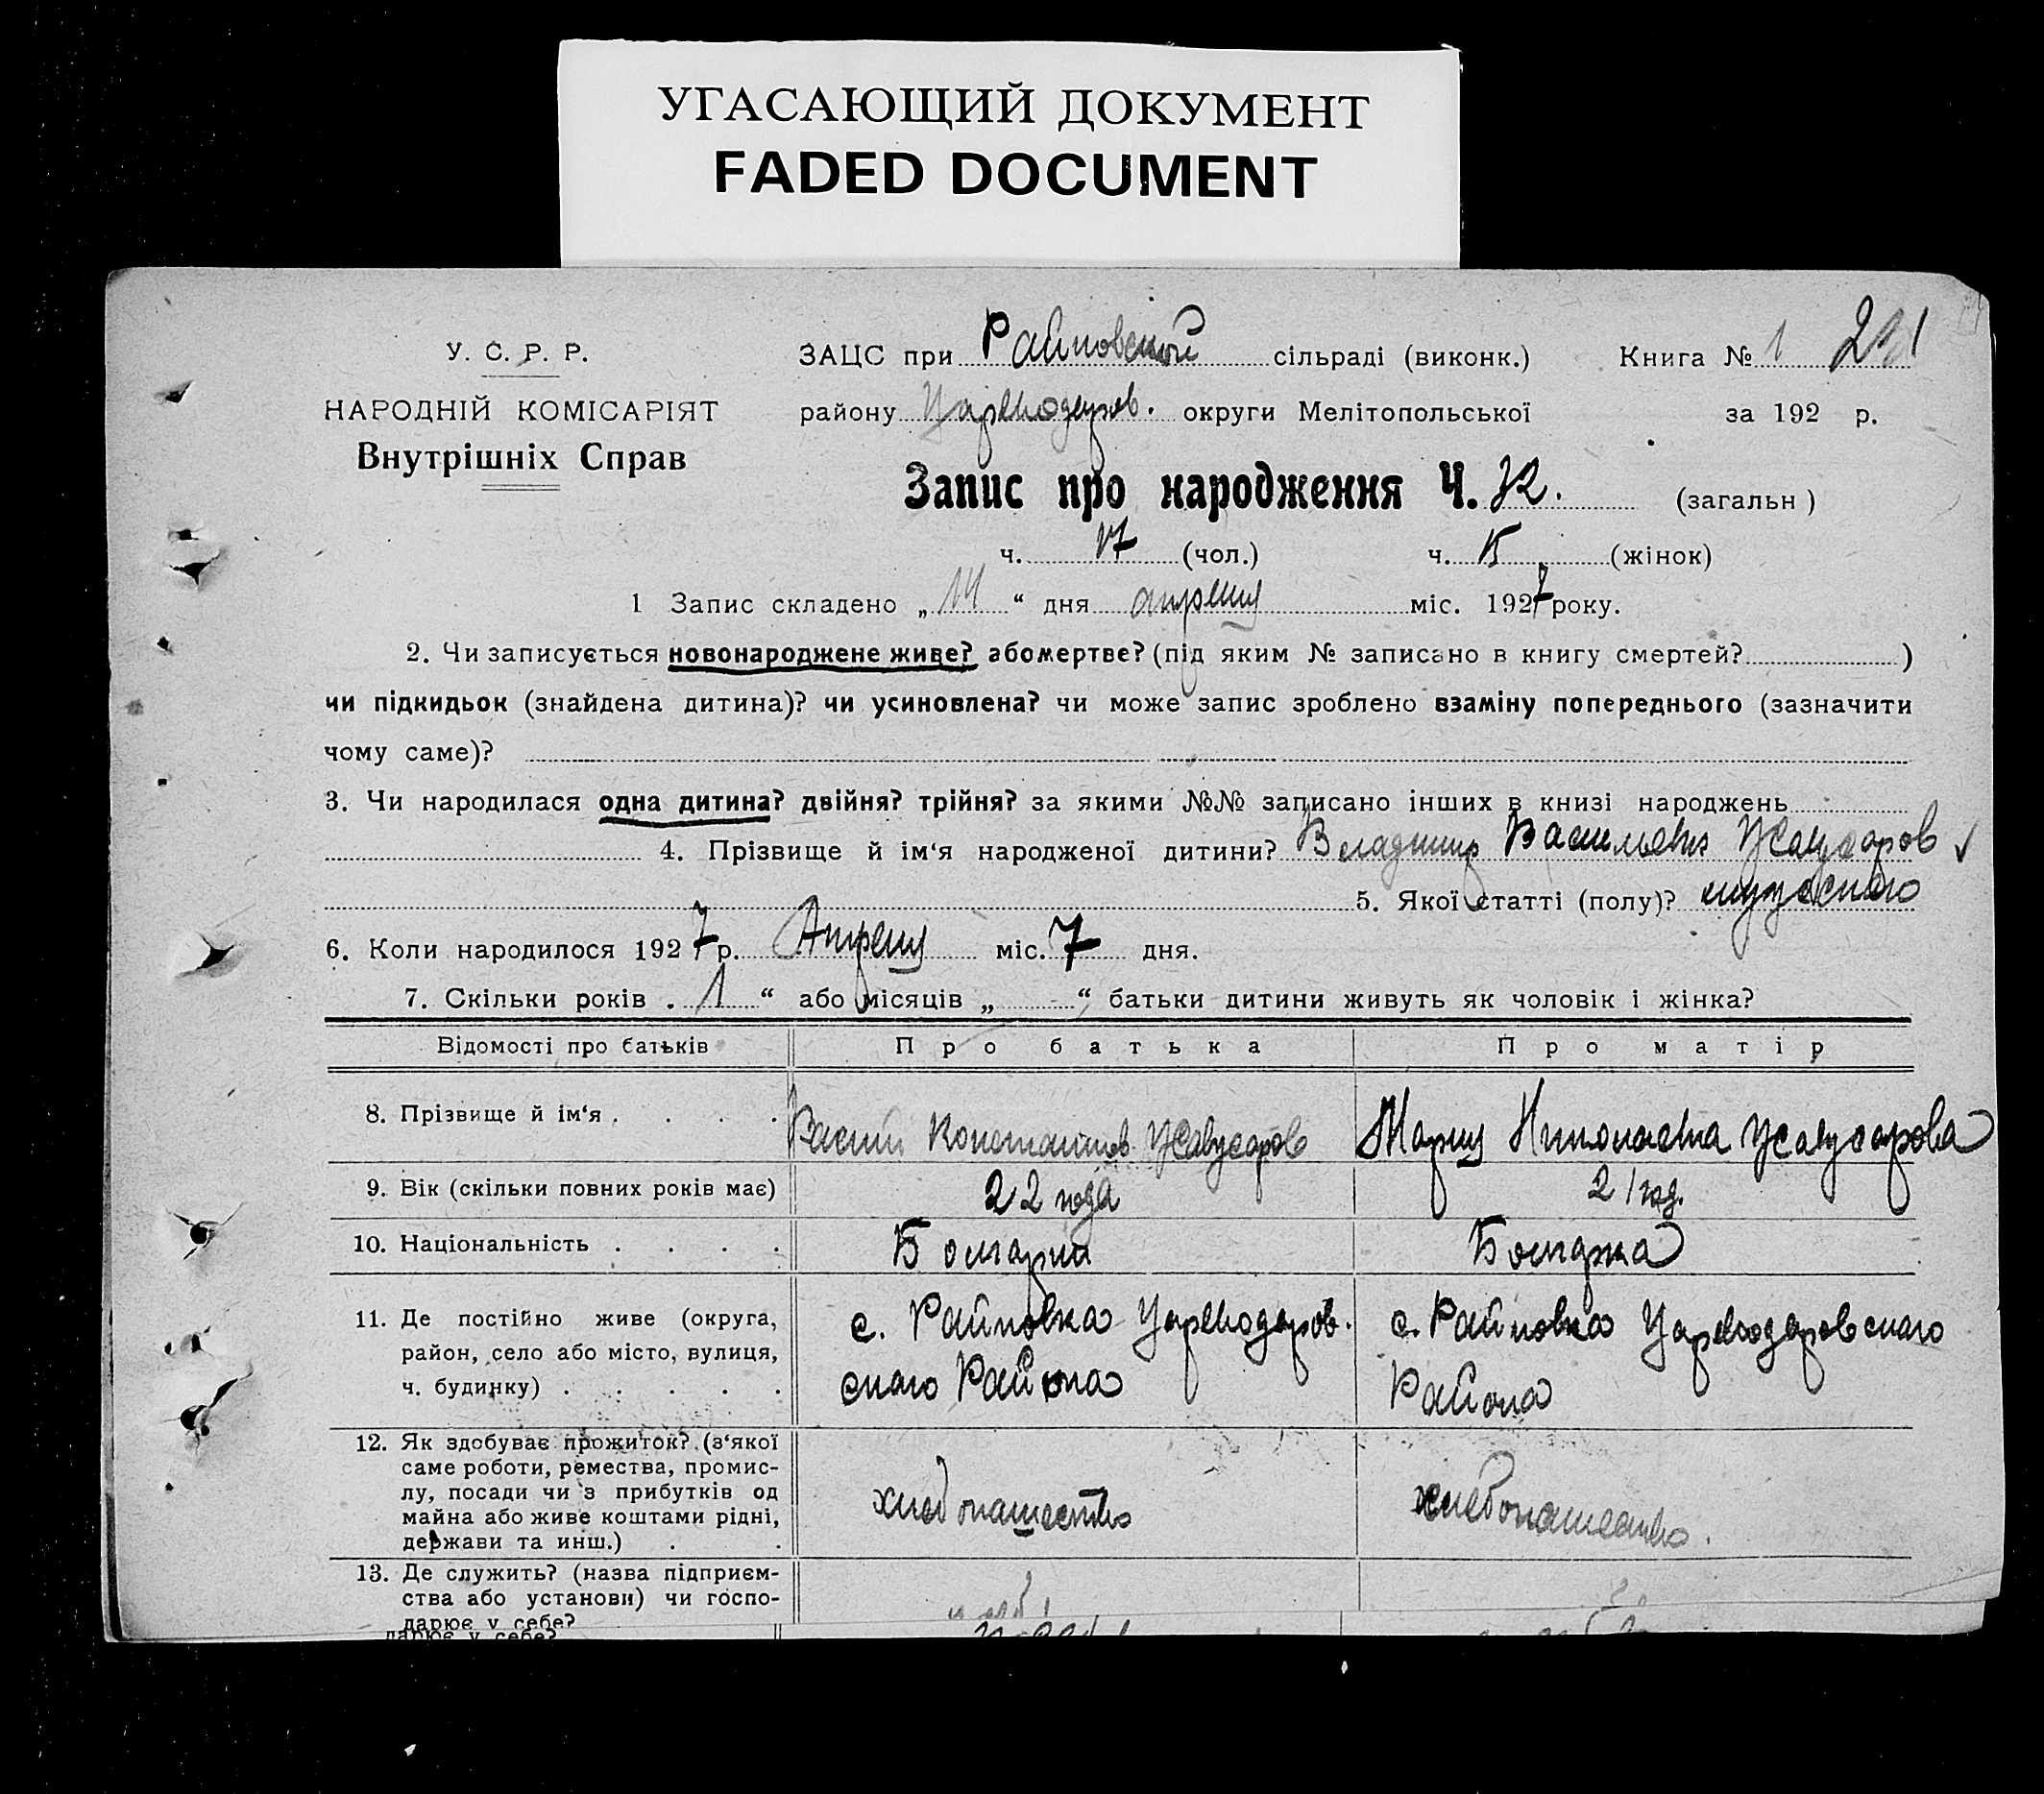 УГАСАЮЩИЙ ДОКУМЕНТ
FADED DOCUMENT
У. С. Р. Р.
НАРОДНІЙ КОМІСАРІЯТ
Внутрішніх Справ
ЗАЦС при Райновской сільраді (виконк.) Книга № 1
району Цареводаров. округи Мелітопольської за 192 р.
Запис про народження Ч. 32. (загальн )
ч. 17 (чол.) ч. 15 (жінок)
1 Запис складено „ 14 “ дня апреля міс. 1927 року.
2. Чи записується новонароджене живе? або мертве? (під яким № записано в книгу смертей? )
чи підкидьок (знайдена дитина)? чи усиновлена? чи може запис зроблено взаміну попереднього (зазначити
чому саме)?
3. Чи народилася одна дитина? двійня? трійня? за якими №№ записано інших в книзі народжень
4. Прізвище й ім‘я народженої дитини? Владимир Васильевич Жавусаров
5. Якої статті (полу)? мужского
6. Коли народилося 1927 р. Апреля міс. 7 дня.
7. Скільки років . 1 “ або місяців „ “ батьки дитини живуть як чоловік і жінка?
Відомості про батьків Про батька Про матір
8. Прізвище й ім‘я . . . . Васили Константинов Жавусаров Мария Николаевна Жавусарова
9. Вік (скільки повних років має) 22 года 21 год.
10. Національність . . . . Болгарин Болгарка
11. Де постійно живе (округа,
район, село або місто, вулиця,
ч. будинку) . . . . .
с. Райновка Цареводаров.
скаго Района
с. Райновка Цареводаровскаго
Района
12. Як здобуває прожиток? (з‘якої
саме роботи, ремества, промис-
лу, посади чи з прибутків од
майна або живе коштами рідні,
держави та инш.) . .
хлебопашество
хлебопашество.
13. Де служить? (назва підприєм-
ства або установи) чи госпо-
дарює у себе?
дарює у себе?